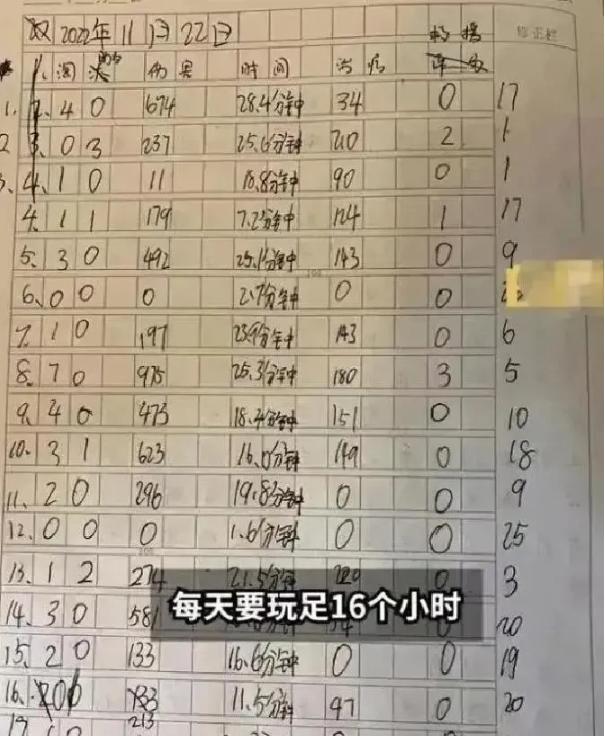 双 2022年11月22日 修正栏
淘汰 伤害 时间 治疗
1. 4 0 674 28.4分钟 34 0 17
2 3. 0 3 237 25.6分钟 210 2 1
3. 4. 1 0 11 10.8分钟 90 0 1
4. 1 1 179 7.2分钟 124 1 17
5. 3 0 492 25.1分钟 143 0 9
6. 0 0 0 2.7分钟 0 0
7. 1 0 197 23.9分钟 143 0 6
8. 7 0 975 25.3分钟 180 3 5
9. 4 0 473 18.4分钟 151 0 10
10. 3 1 623 16.0分钟 149 0 18
11. 2 0 296 19.8分钟 0 0 9
12. 0 0 0 1.6分钟 0 0 25
13. 1 2 274 21.5分钟 220 0 3
每天要玩足16个小时
14. 3 0 581 20
15. 2 0 133 16.6分钟 0 0 19
16. 11.5分钟 47 0 20
213